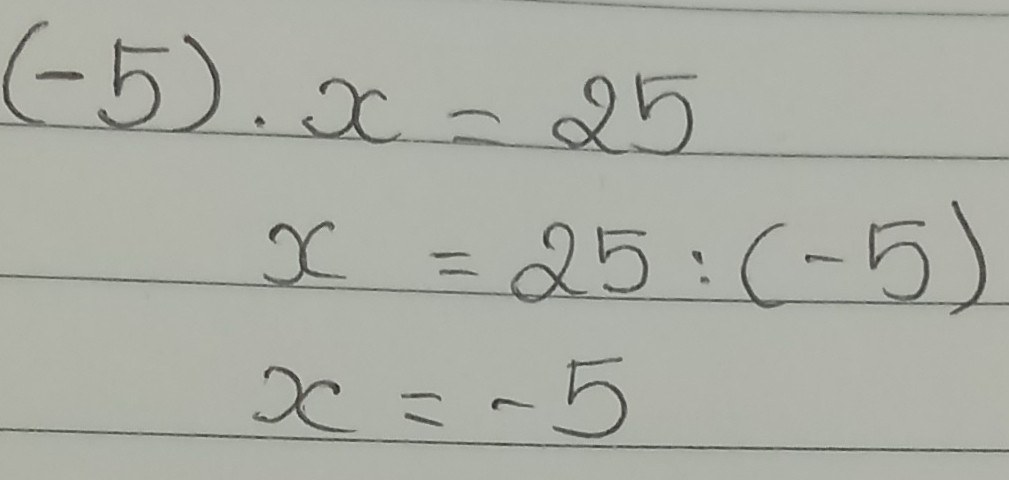 (-5) . x = 25
x = 25 : (-5)
x = -5